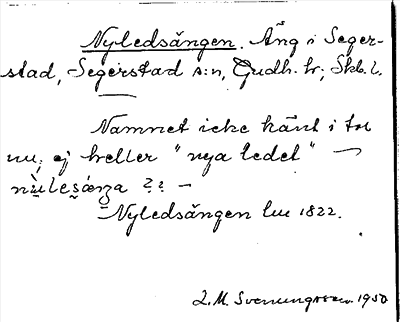 Nyledsängen. Äng i Seger-
stad, Segerstad s:n, Gudh. hr; Skb. l.
Namnet icke känt i
nu; ej heller "nya ledet" —
?? —
— Nyledsängen lm 1822.
L. M. Svenungsson. 1950